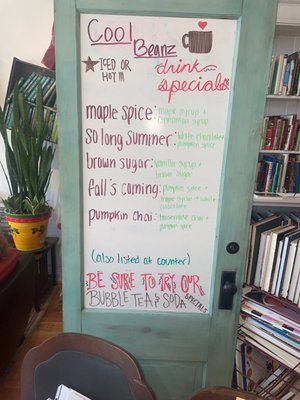 Cool Beanz
★ ICED OR HOT!!!
drink specials
maple spice: maple syrup + cinnamon syrup
so long summer: white chocolate + pumpkin spice
brown sugar: vanilla syrup + brown sugar
fall's coming: pumpkin spice + maple syrup + white chocolate
pumpkin chai: housemade chai + pumpkin spice
(also listed at counter)
BE SURE TO TRY OUR
BUBBLE TEA & SODA SPECIALS